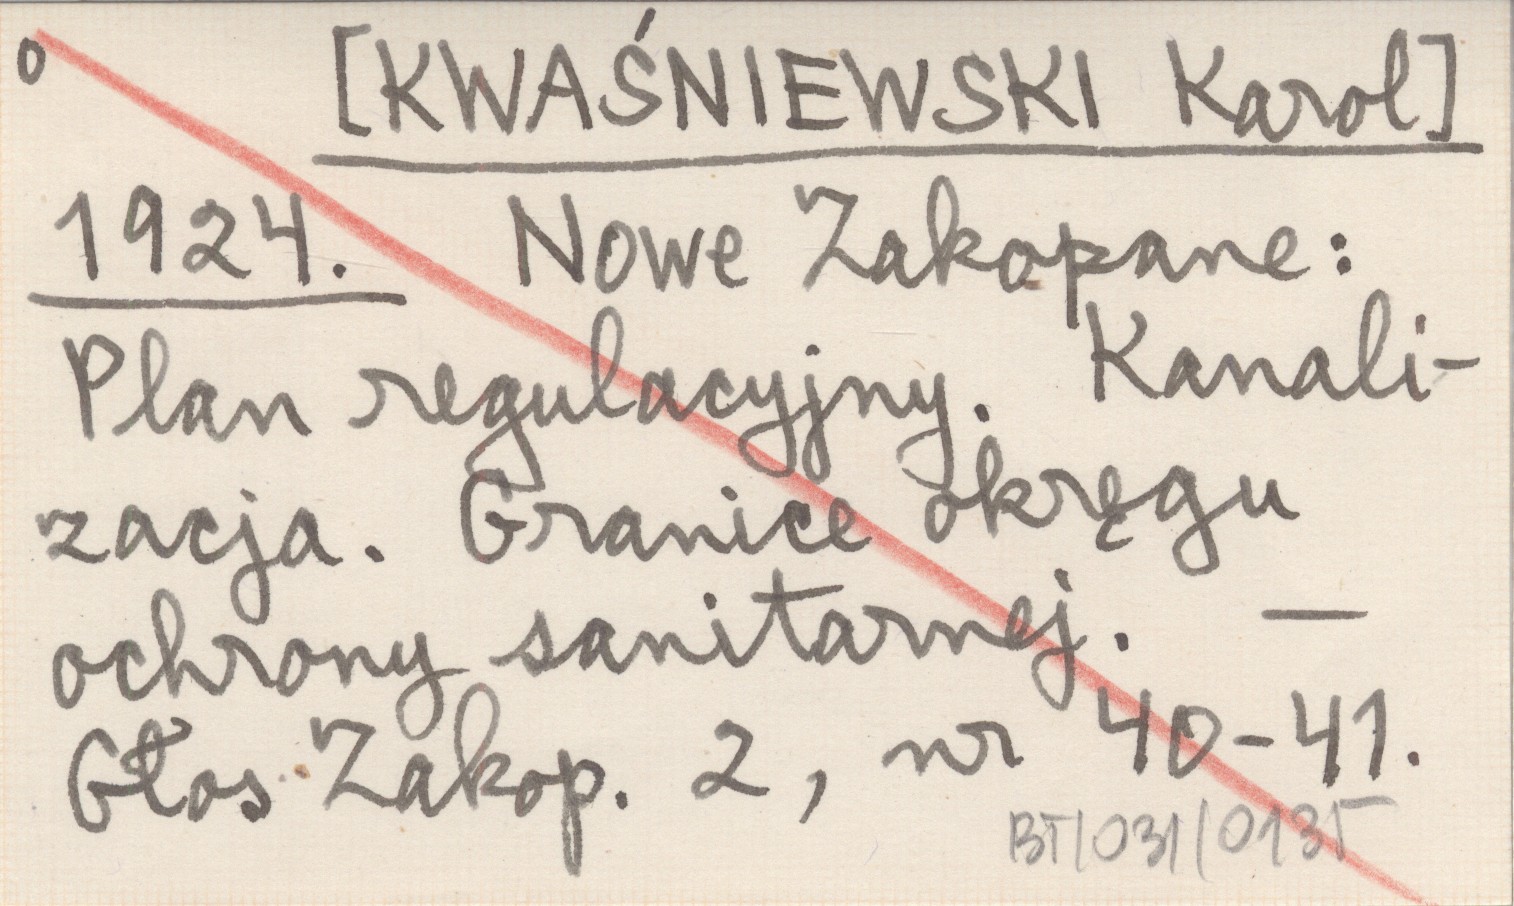 o [KWAŚNIEWSKI Karol]
1924. Nowe Zakopane:
Plan regulacyjny. Kanali-
zacja. Granice okręgu
ochrony sanitarnej. —
Głos Zakop. 2, nr 40-41.
BT/031/0135